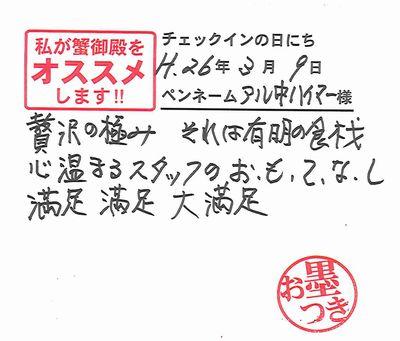 私が蟹御殿を
オススメ
します!!
チェックインの日にち
H.26年3月9日
ペンネームアル中ハイマー様
贅沢の極み それは有明の食桟
心温まるスタッフのお.も.て.な.し
満足 満足 大満足
お墨つき